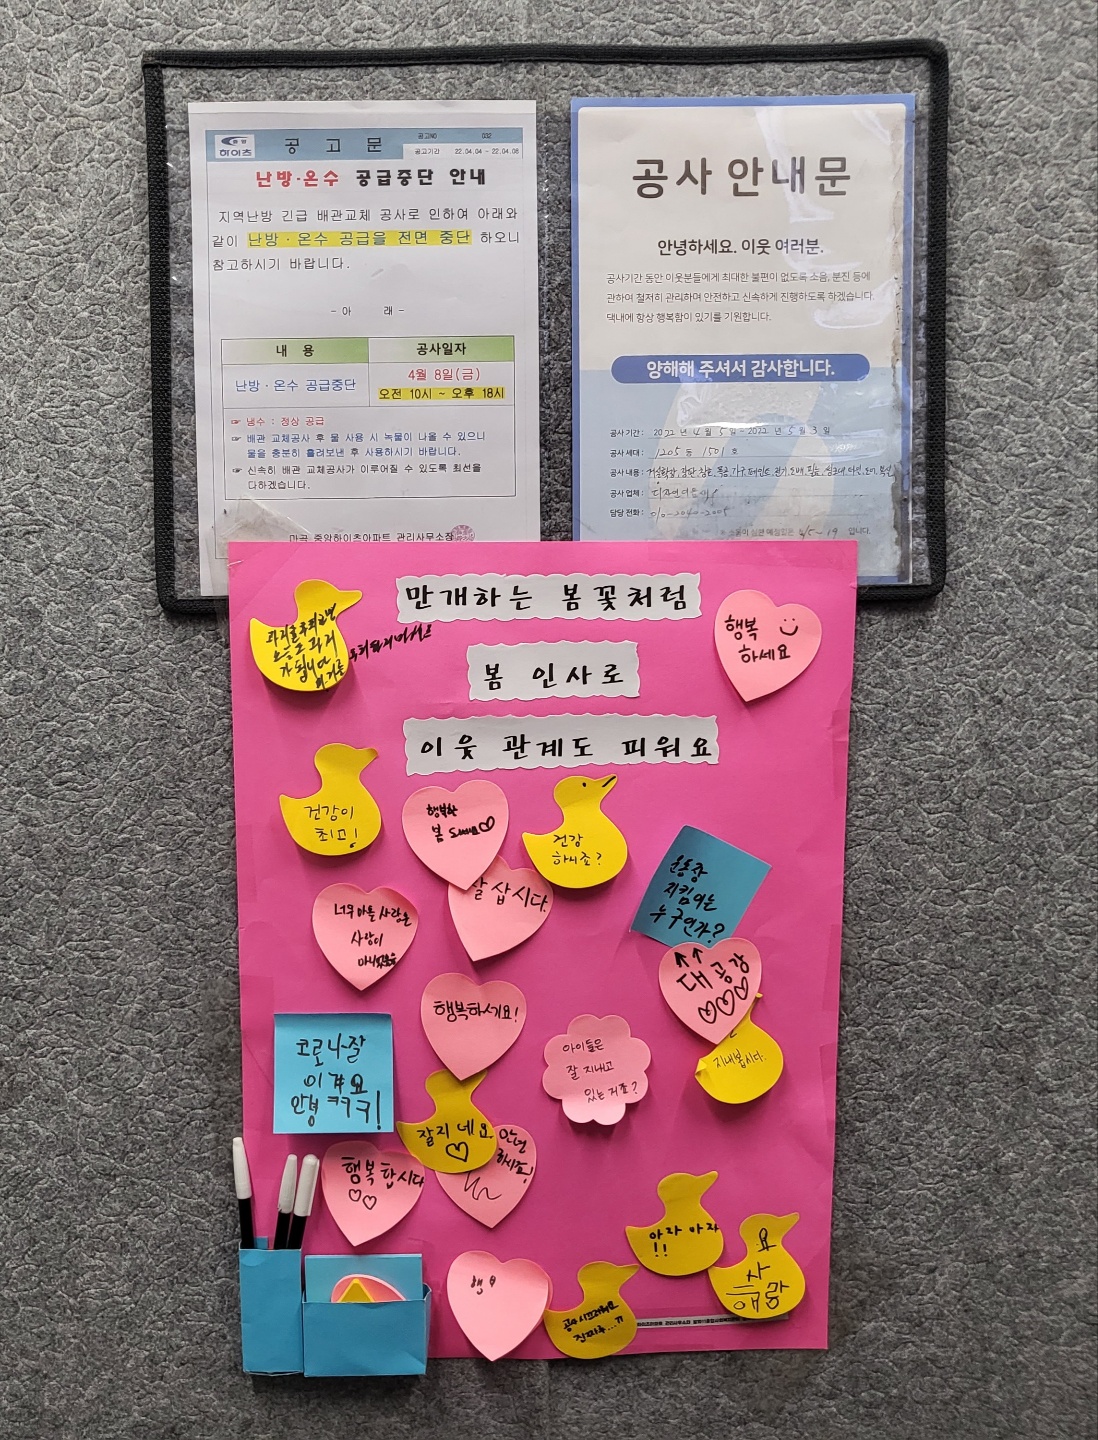 중앙
하이츠
공 고 문
공고NO 032
공고기간 22.04.04 - 22.04.08
난방·온수 공급중단 안내
지역난방 긴급 배관교체 공사로 인하여 아래와
같이 난방·온수 공급을 전면 중단 하오니
참고하시기 바랍니다.
- 아 래 -
내 용 공사일자
난방·온수 공급중단
4월 8일(금)
오전 10시 ~ 오후 18시
☞ 냉수 : 정상 공급
☞ 배관 교체공사 후 물 사용 시 녹물이 나올 수 있으니
물을 충분히 흘려보낸 후 사용하시기 바랍니다.
☞ 신속히 배관 교체공사가 이루어질 수 있도록 최선을
다하겠습니다.
마곡 중앙하이츠아파트 관리사무소장
공사 안내문
안녕하세요. 이웃 여러분.
공사기간 동안 이웃분들에게 최대한 불편이 없도록 소음, 분진 등에
관하여 철저히 관리하며 안전하고 신속하게 진행하도록 하겠습니다.
댁내에 항상 행복함이 있기를 기원합니다.
양해해 주셔서 감사합니다.
공사기간 : 2022 년 4 월 5 일 - 2022 년 5 월 3 일
공사 세대 : 1205 동 1501 호
공사 내용 :
공사 업체 :
담당 전화 : 010-2040-2005
입니다.
만개하는 봄꽃처럼
봄 인사로
이웃 관계도 피워요
과거를 후회하면
오늘도 과거
가 됩니다
후회하지마세요
행복
하세요
건강이
최고!
행복한
봄
건강
하시죠?
잘 삽시다.
운동장
지킴이는
누구인가?
너무 아픈 사랑은
사랑이
아니었음을
↑↑
대공감
행복하세요!
지내봅시다.
아이들은
잘 지내고
있는 거죠?
코로나 잘
이겨요
안녕 ㅋㅋㅋ!
잘지내요
안녕
하시죠!
행복합시다
아자 아자
!!
요
사
해맑
행복
공사 시끄러워요
진짜루...ㅠ